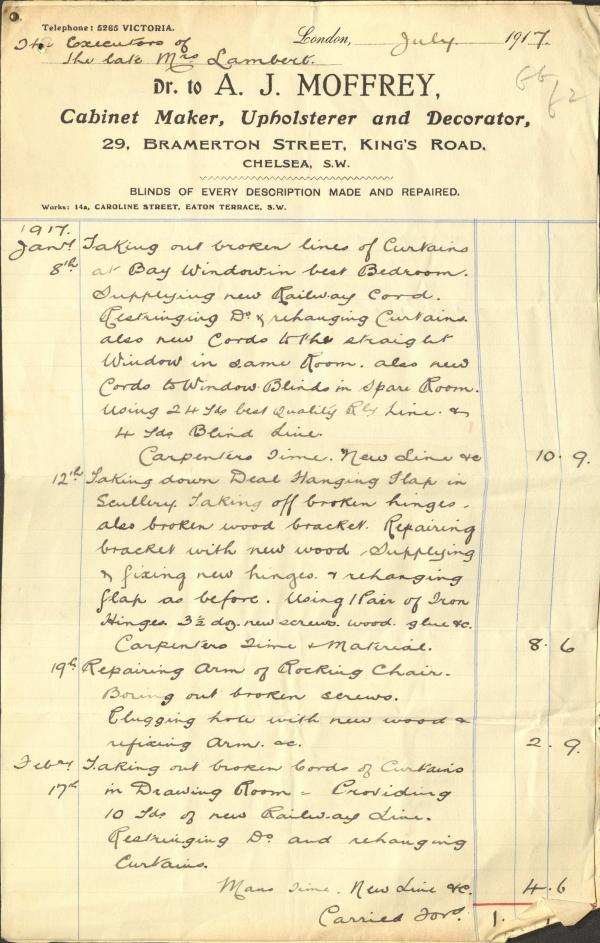 Telephone: 5265 VICTORIA.
London, July 1917.
The Executors of
the late Mrs Lambert.
Dr. to A. J. MOFFREY,
Cabinet Maker, Upholsterer and Decorator,
29, BRAMERTON STREET, KING'S ROAD,
CHELSEA, S.W.
BLINDS OF EVERY DESCRIPTION MADE AND REPAIRED.
Works: 14a, CAROLINE STREET, EATON TERRACE, S.W.
1917.
Jany Taking out broken lines of Curtains
8th at Bay Window in best Bedroom.
Supplying new Railway Cord.
Restringing Do & rehanging Curtains.
also new Cords to the straight
Window in same Room. also new
Cords to Window Blinds in Spare Room.
Using 24 Yds best Quality Rly Line. &
4 Yds Blind Line.
Carpenters Time. New Line &c 10. 9.
12th Taking down Deal Hanging Flap in
Scullery. Taking off broken hinges.
also broken wood bracket. Repairing
bracket with new wood. Supplying
& fixing new hinges. & rehanging
flap as before. Using 1 Pair of Iron
Hinges. 3½ doz. new screws. wood. glue &c.
Carpenters Time & Material. 8. 6
19th Repairing Arm of Rocking Chair.
Boring out broken screws.
Plugging hole with new wood &
refixing Arm. &c. 2. 9.
Feby Taking out broken Cords of Curtains
17th in Drawing Room - Providing
10 Yds of new Railway Line.
Restringing Do and rehanging
Curtains.
Mans Time. New Line &c. 4. 6
Carried Ford. 1.